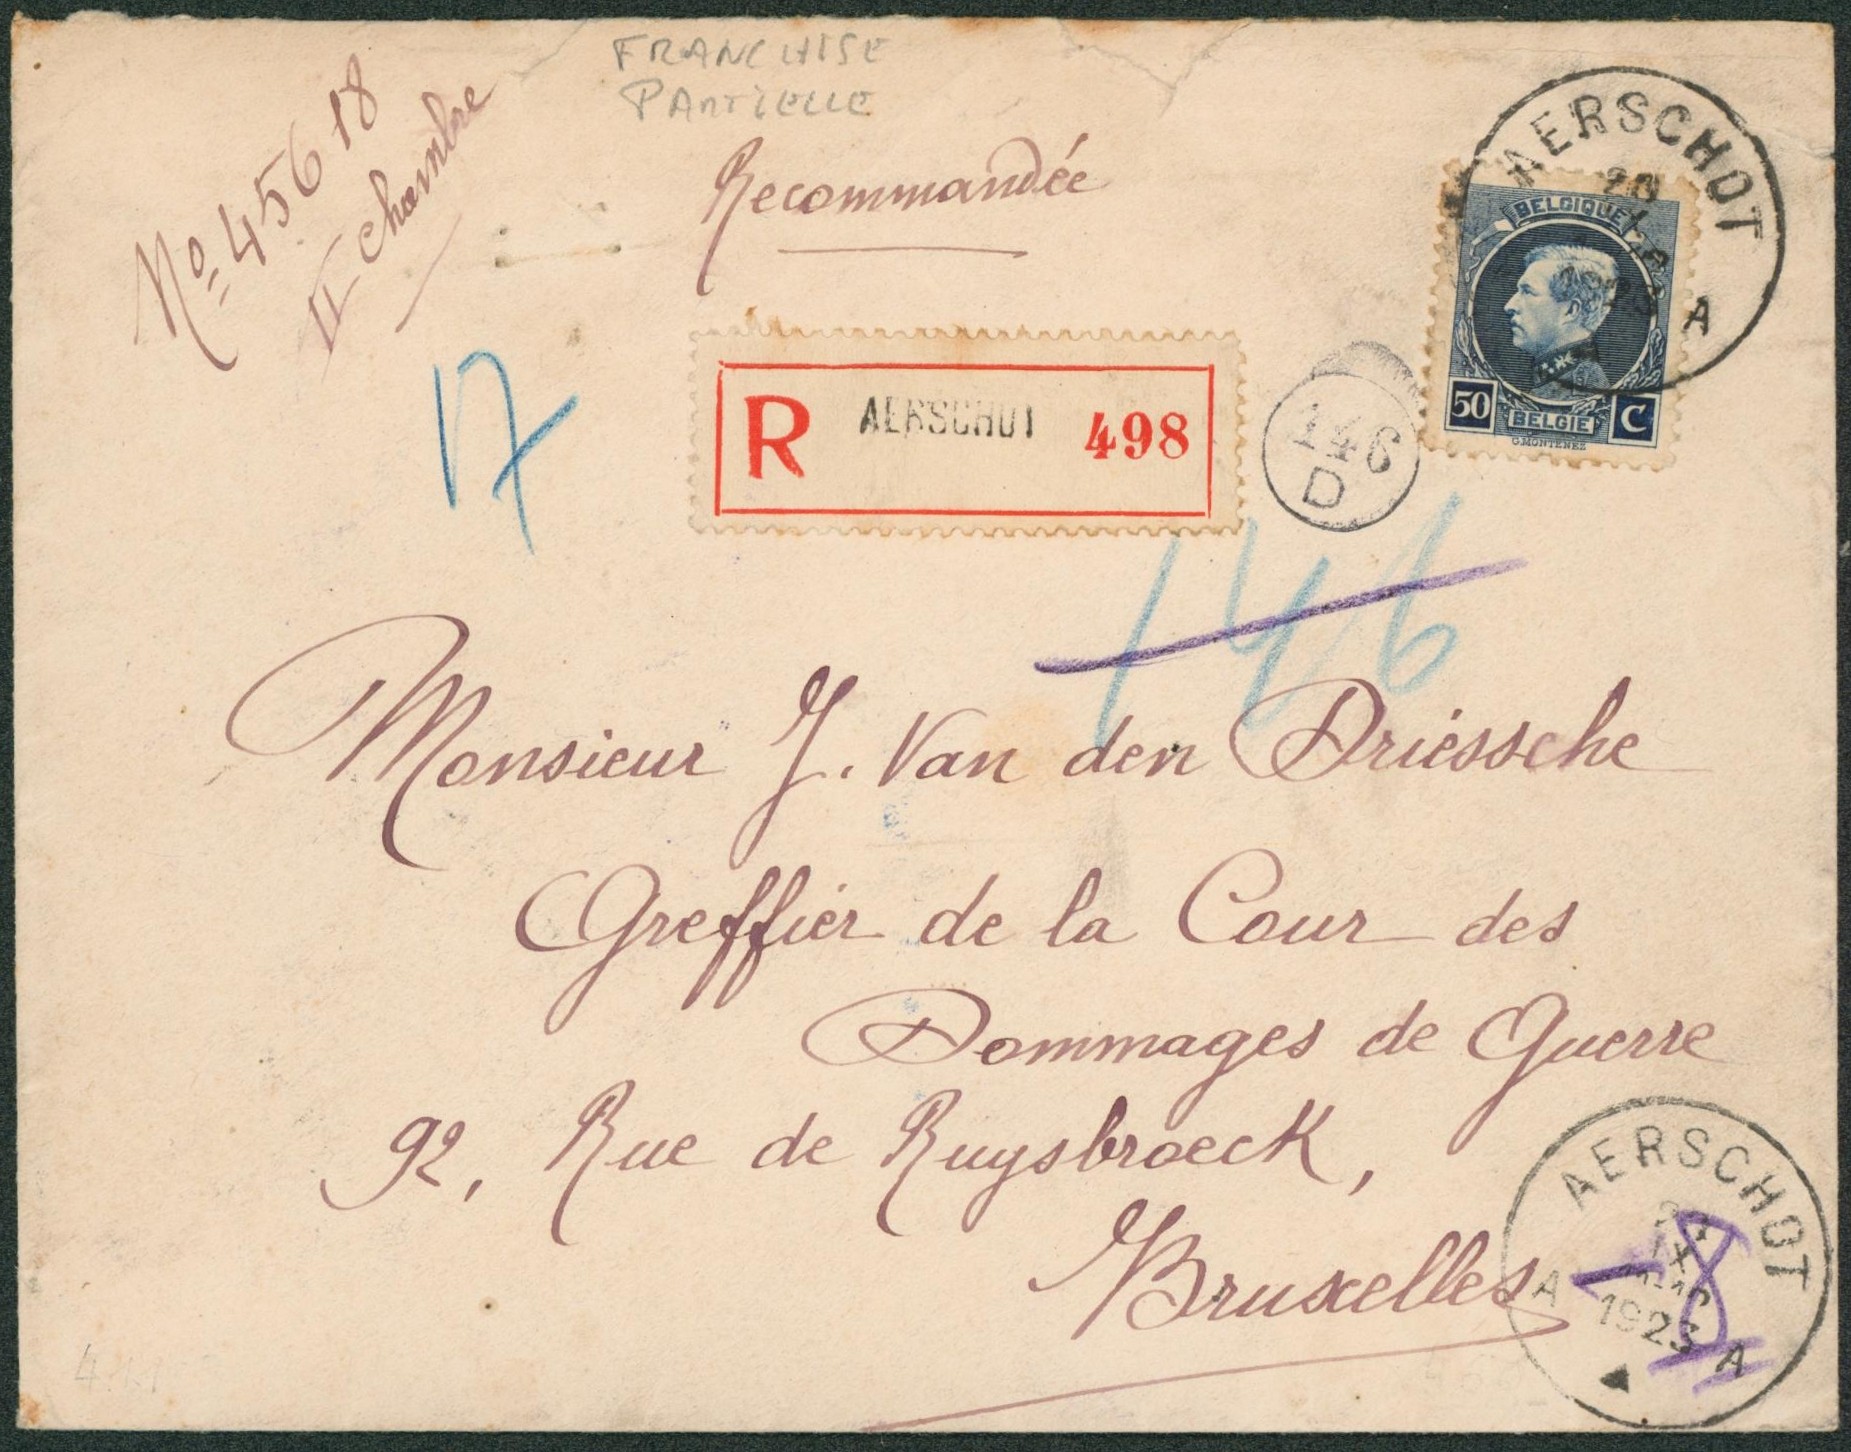 FRANCHISE
PARTIELLE
No 45618
II Chambre
Recommandée
AERSCHOT
A
BELGIQUE
50 C
BELGIË
G. MONTENEZ
17
R AERSCHOT 498
146
D
146
Monsieur J. Van den Driessche
Greffier de la Cour des
Dommages de Guerre
92, Rue de Ruysbroeck,
Bruxelles
AERSCHOT
IX
1923
A A